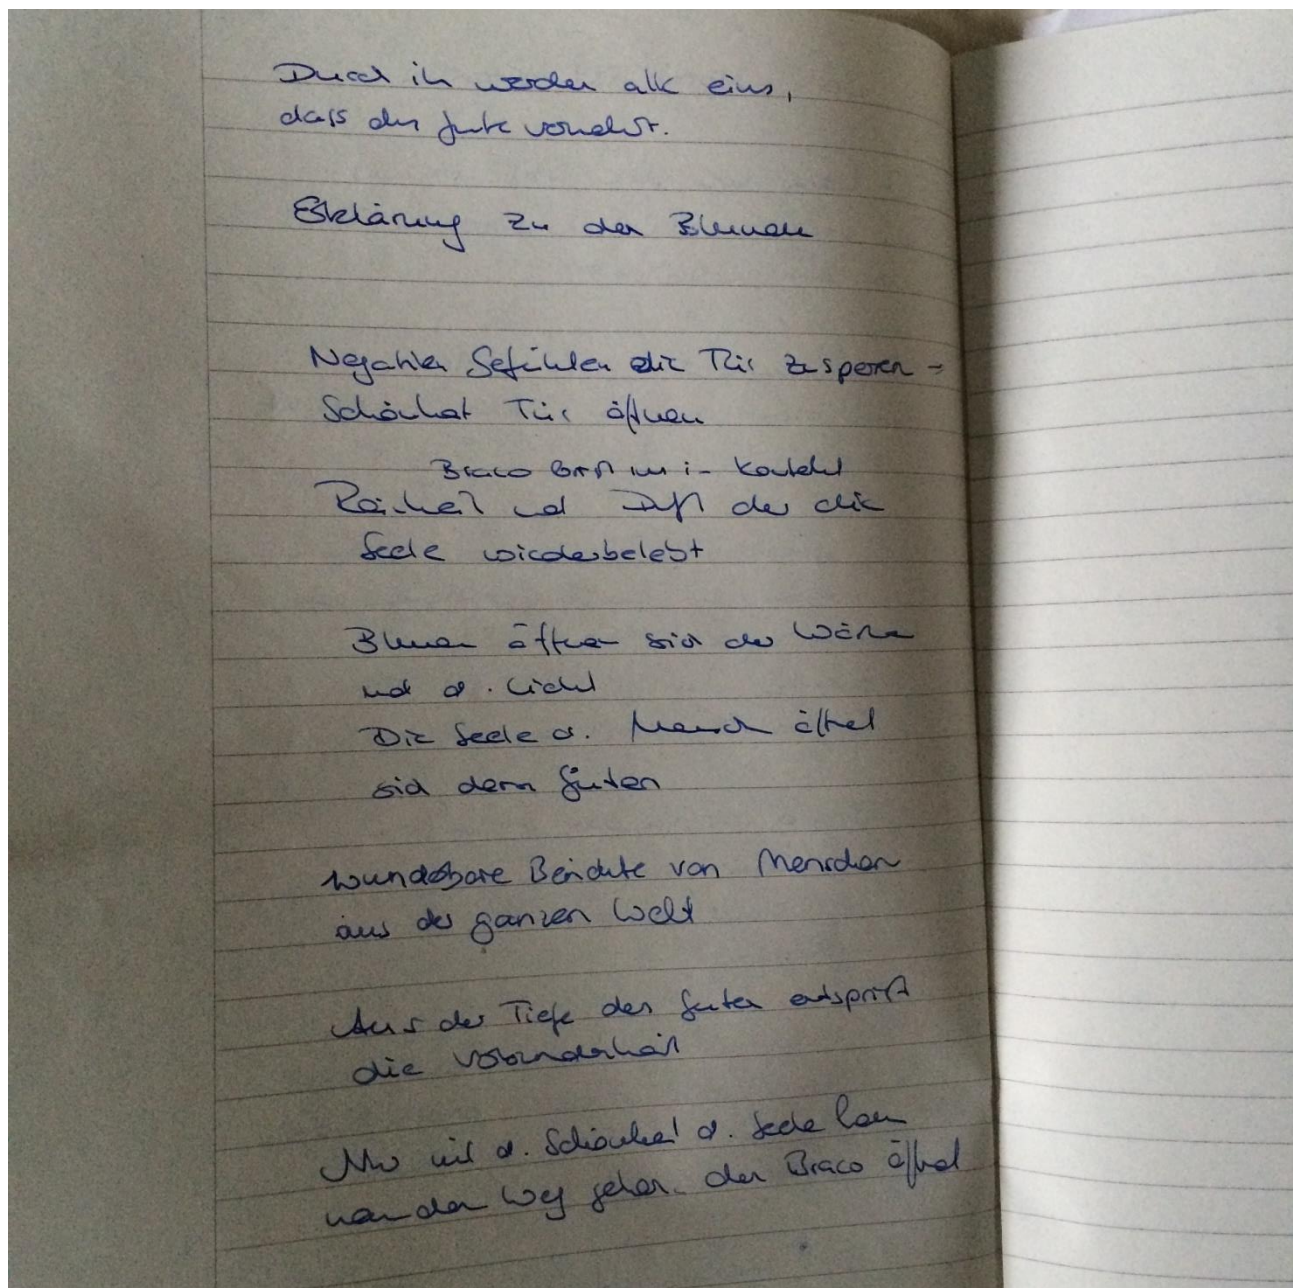 Durch ih werden alle eins,
dass das Gute vermehrt.
Erklärung zu den Blumen
Negativen Gefühlen die Tür zusperren -
Schönheit Tür öffnen
Braco bringt uns in Kontakt
Reinheit und Duft der die
Seele wiederbelebt
Blumen öffnen sich der Wärme
und d. Licht
Die Seele d. Mensch öffnet
sich dem Guten
wunderbare Berichte von Menschen
aus der ganzen Welt
Aus der Tiefe des Guten entspringt
die Verbundenheit
Nur mit d. Schönheit d. Seele kann
man den Weg gehen den Braco öffnet